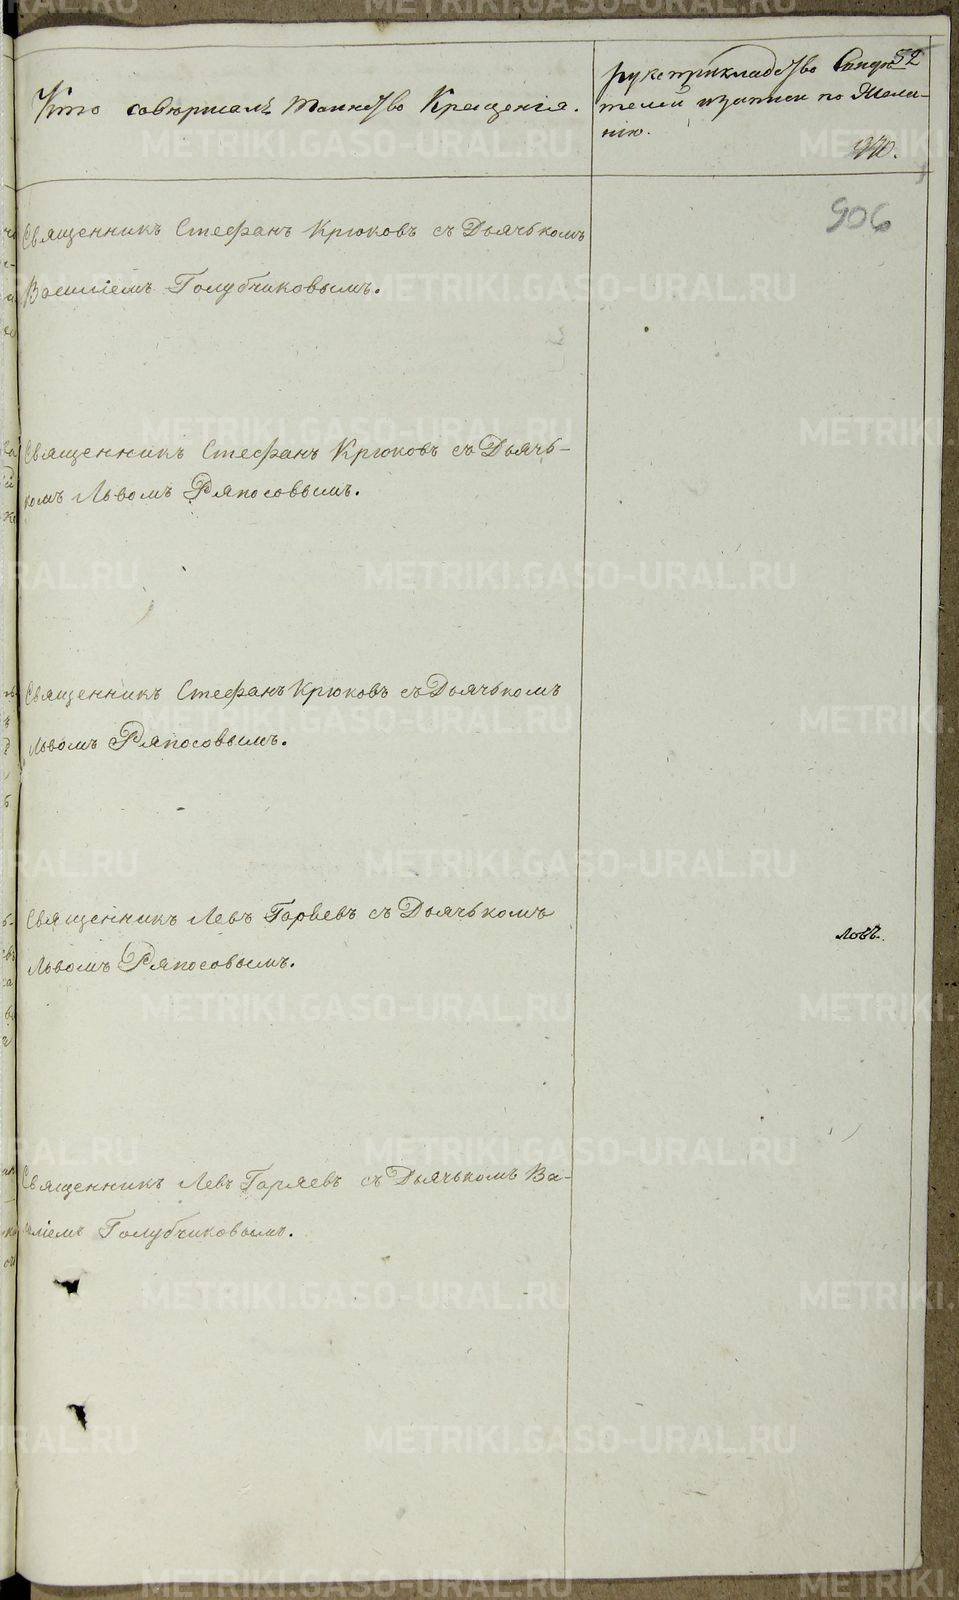 Кто совершалъ Таинство Крещенія.
рукоприкладство Свидѣ
телей записи по Жела-
нію.
52
906
Священникъ Стефанъ Крюковъ съ Дьячькомъ
Василіемъ Голубчиковымъ.
Священникъ Стефанъ Крюковъ съ Дьячь-
комъ Львомъ Ряпосовымъ.
Священникъ Стефанъ Крюковъ съ Дьячькомъ
Львомъ Ряпосовымъ.
Священникъ Левъ Гаряевъ съ Дьячькомъ
Львомъ Ряпосовымъ.
Священникъ Левъ Гаряевъ съ Дьячькомъ Ва-
силіемъ Голубчиковымъ.
METRIKI.GASO-URAL.RU